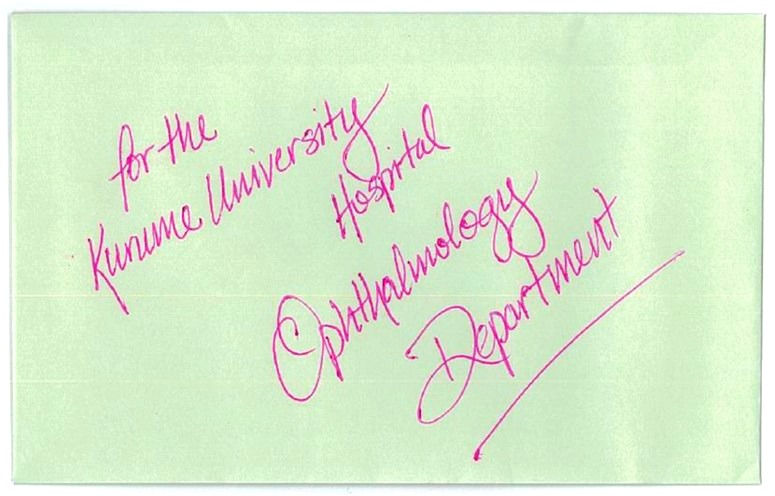 for the
Kurume University
Hospital
Ophthalmology
Department